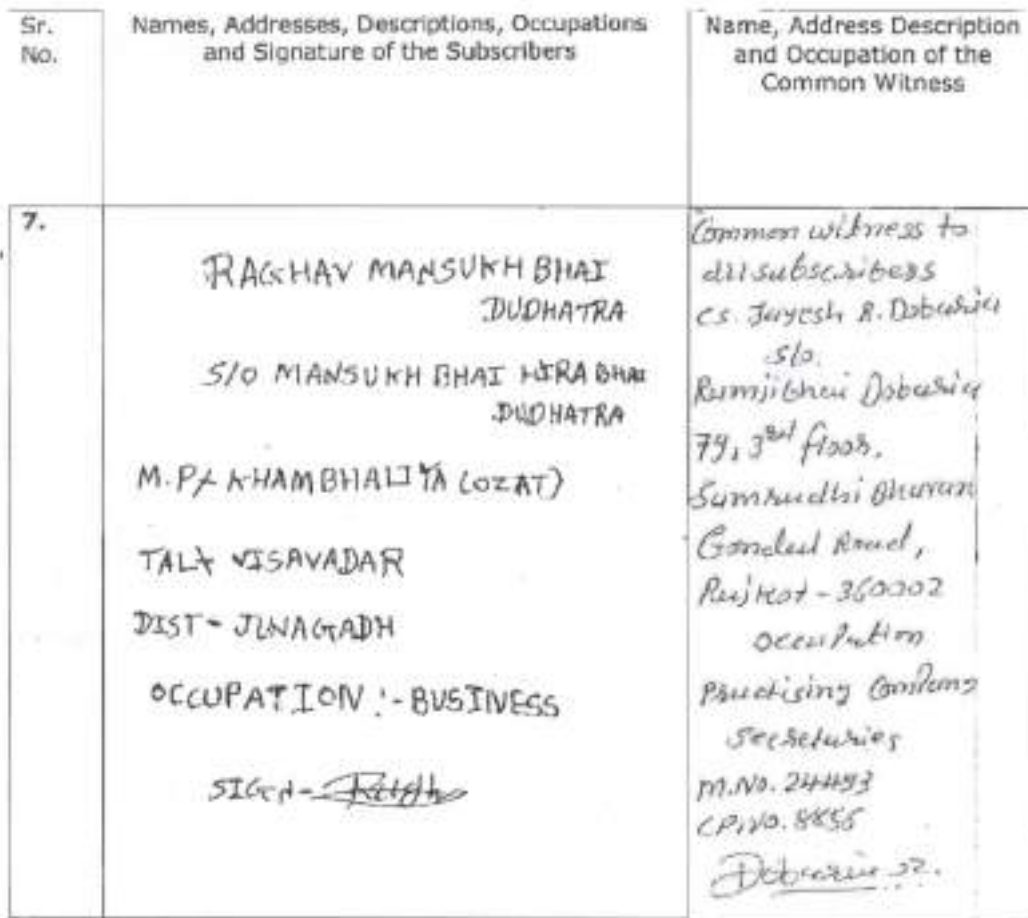 Sr.
No.
Names, Addresses, Descriptions, Occupations
and Signature of the Subscribers
Name, Address Description
and Occupation of the
Common Witness
7.
RAGHAV MANSUKHBHAI
DUDHATRA
S/O MANSUKHBHAI HIRABHAI
DUDHATRA
M.P/- KHAMBHALIYA (OZAT)
TAL/- VISAVADAR
DIST - JUNAGADH
OCCUPATION :- BUSINESS
SIGN -
Common witness to
all subscribers
CS. Jayesh R. Dobariya
S/o.
Ramjibhai Dobariya
79, 3rd floor,
Samrudhi Bhavan
Gondal Road,
Rajkot - 360002
occupation
Practising Company
Secretaries
M.No. 24493
CP.No. 8856